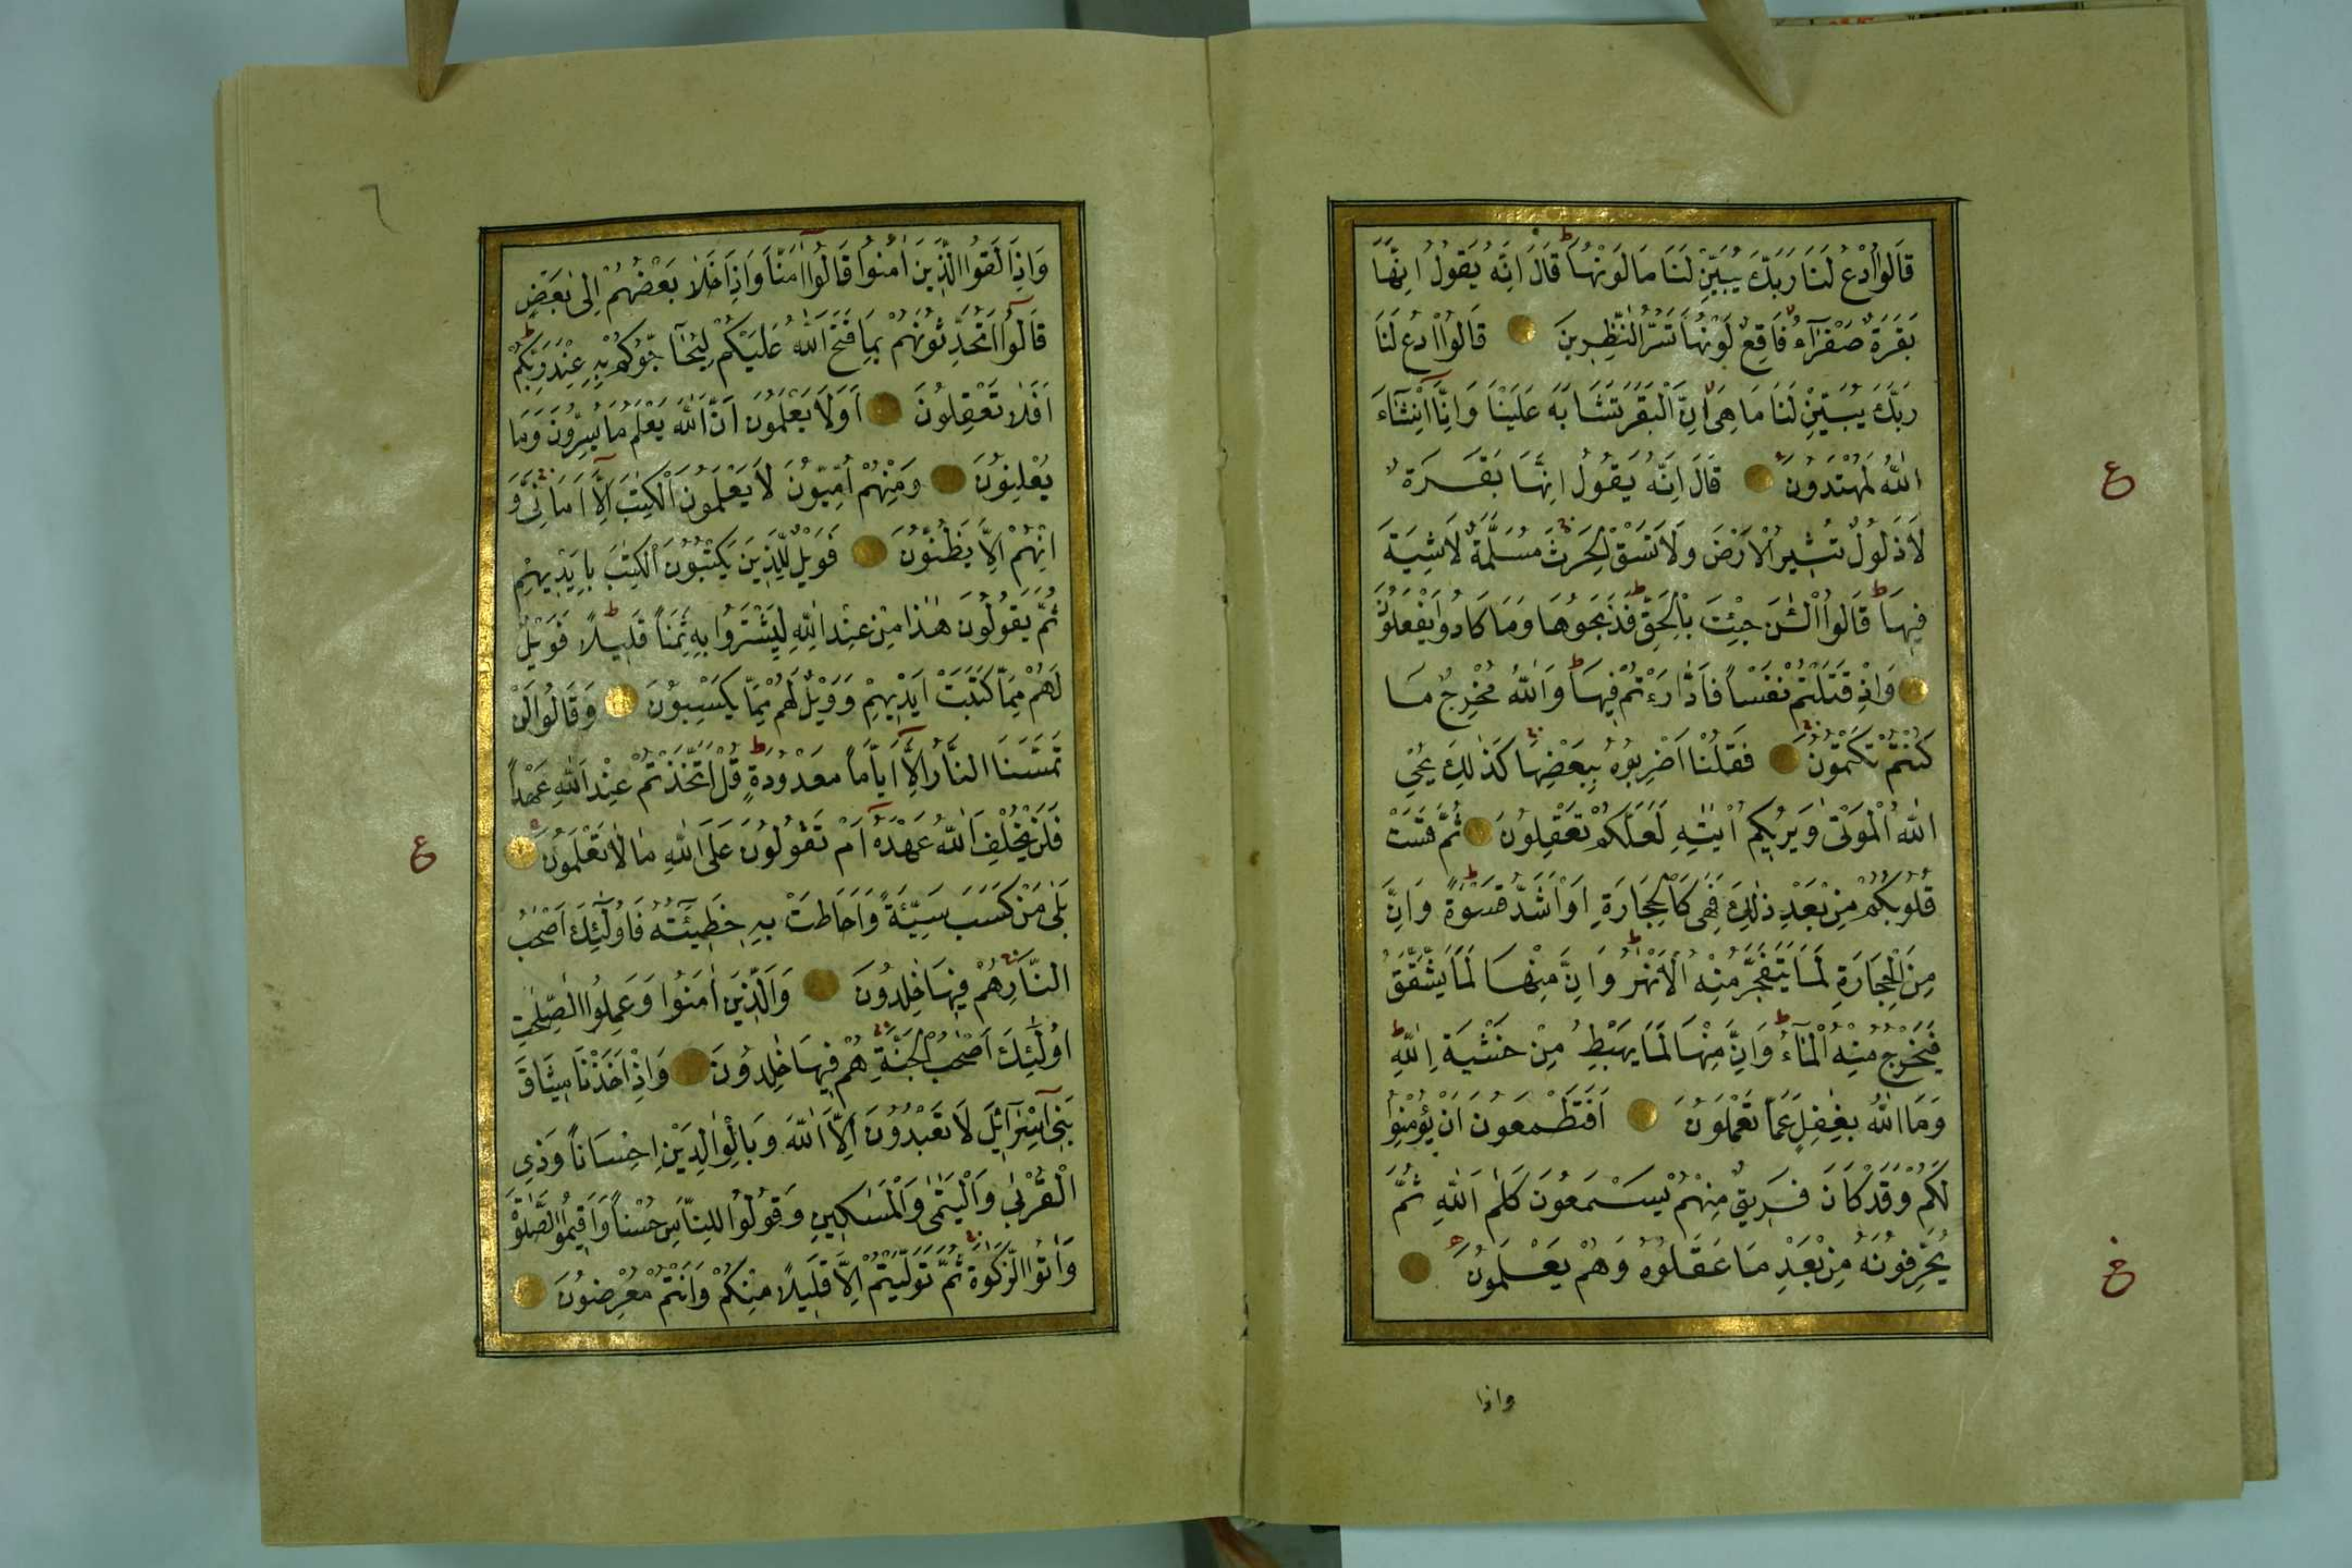 قَالُوا ادْعُ لَنَا رَبَّكَ يُبَيِّنْ لَنَا مَا لَوْنُهَا ط قَالَ اِنَّهُ يَقُولُ اِنَّهَا
بَقَرَةٌ صَفْرَآءُ فَاقِعٌ لَوْنُهَا تَسُرُّ النّٰظِرِينَ قَالُوا ادْعُ لَنَا
رَبَّكَ يُبَيِّنْ لَنَا مَا هِىَ اِنَّ الْبَقَرَ تَشَابَهَ عَلَيْنَا وَاِنَّآ اِنْشَآءَ
اللّٰهُ لَمُهْتَدُونَ قَالَ اِنَّهُ يَقُولُ اِنَّهَا بَقَرَةٌ
ع
لَا ذَلُولٌ تُثِيرُ الْاَرْضَ وَلَا تَسْقِى الْحَرْثَ مُسَلَّمَةٌ لَا شِيَةَ
فِيهَا ط قَالُوا الْـٰٔنَ جِئْتَ بِالْحَقِّ ط فَذَبَحُوهَا وَمَا كَادُوا يَفْعَلُونَ
وَاِذْ قَتَلْتُمْ نَفْسًا فَادّٰرَءْتُمْ فِيهَا ط وَاللّٰهُ مُخْرِجٌ مَا
كُنْتُمْ تَكْتُمُونَ فَقُلْنَا اضْرِبُوهُ بِبَعْضِهَا كَذٰلِكَ يُحْيِ
اللّٰهُ الْمَوْتٰى وَيُرِيكُمْ اٰيٰتِهِ لَعَلَّكُمْ تَعْقِلُونَ ثُمَّ قَسَتْ
قُلُوبُكُمْ مِنْ بَعْدِ ذٰلِكَ فَهِىَ كَالْحِجَارَةِ اَوْ اَشَدُّ قَسْوَةً ط وَاِنَّ
مِنَ الْحِجَارَةِ لَمَا يَتَفَجَّرُ مِنْهُ الْاَنْهٰرُ ط وَاِنَّ مِنْهَا لَمَا يَشَّقَّقُ
فَيَخْرُجُ مِنْهُ الْمَآءُ ط وَاِنَّ مِنْهَا لَمَا يَهْبِطُ مِنْ خَشْيَةِ اللّٰهِ ط
وَمَا اللّٰهُ بِغٰفِلٍ عَمَّا تَعْمَلُونَ اَفَتَطْمَعُونَ اَنْ يُؤْمِنُوا
لَكُمْ وَقَدْ كَانَ فَرِيقٌ مِنْهُمْ يَسْمَعُونَ كَلٰمَ اللّٰهِ ثُمَّ
يُحَرِّفُونَهُ مِنْ بَعْدِ مَا عَقَلُوهُ وَهُمْ يَعْلَمُونَ
واذا
وَاِذَا لَقُوا الَّذِينَ اٰمَنُوا قَالُوا اٰمَنَّا وَاِذَا خَلَا بَعْضُهُمْ اِلٰى بَعْضٍ
قَالُوا اَتُحَدِّثُونَهُمْ بِمَا فَتَحَ اللّٰهُ عَلَيْكُمْ لِيُحَآجُّوكُمْ بِهِ عِنْدَ رَبِّكُمْ ط
اَفَلَا تَعْقِلُونَ اَوَلَا يَعْلَمُونَ اَنَّ اللّٰهَ يَعْلَمُ مَا يُسِرُّونَ وَمَا
يُعْلِنُونَ وَمِنْهُمْ اُمِّيُّونَ لَا يَعْلَمُونَ الْكِتٰبَ اِلَّا اَمَانِىَّ وَ
اِنْهُمْ اِلَّا يَظُنُّونَ فَوَيْلٌ لِلَّذِينَ يَكْتُبُونَ الْكِتٰبَ بِاَيْدِيهِمْ
ثُمَّ يَقُولُونَ هٰذَا مِنْ عِنْدِ اللّٰهِ لِيَشْتَرُوا بِهِ ثَمَنًا قَلِيلًا ط فَوَيْلٌ
لَهُمْ مِمَّا كَتَبَتْ اَيْدِيهِمْ وَوَيْلٌ لَهُمْ مِمَّا يَكْسِبُونَ وَقَالُوا لَنْ
تَمَسَّنَا النَّارُ اِلَّا اَيَّامًا مَعْدُودَةً ط قُلْ اَتَّخَذْتُمْ عِنْدَ اللّٰهِ عَهْدًا
فَلَنْ يُخْلِفَ اللّٰهُ عَهْدَهُ اَمْ تَقُولُونَ عَلَى اللّٰهِ مَا لَا تَعْلَمُونَ
ع
بَلٰى مَنْ كَسَبَ سَيِّئَةً وَاَحَاطَتْ بِهِ خَطِيئَتُهُ فَاُولٰٓئِكَ اَصْحٰبُ
النَّارِ هُمْ فِيهَا خٰلِدُونَ وَالَّذِينَ اٰمَنُوا وَعَمِلُوا الصّٰلِحٰتِ
اُولٰٓئِكَ اَصْحٰبُ الْجَنَّةِ هُمْ فِيهَا خٰلِدُونَ وَاِذْ اَخَذْنَا مِيثَاقَ
بَنِىٓ اِسْرَآئِلَ لَا تَعْبُدُونَ اِلَّا اللّٰهَ وَبِالْوَالِدَيْنِ اِحْسَانًا وَذِى
الْقُرْبٰى وَالْيَتٰمٰى وَالْمَسٰكِينِ وَقُولُوا لِلنَّاسِ حُسْنًا وَاَقِيمُوا الصَّلٰوةَ
وَاٰتُوا الزَّكٰوةَ ثُمَّ تَوَلَّيْتُمْ اِلَّا قَلِيلًا مِنْكُمْ وَاَنْتُمْ مُعْرِضُونَ